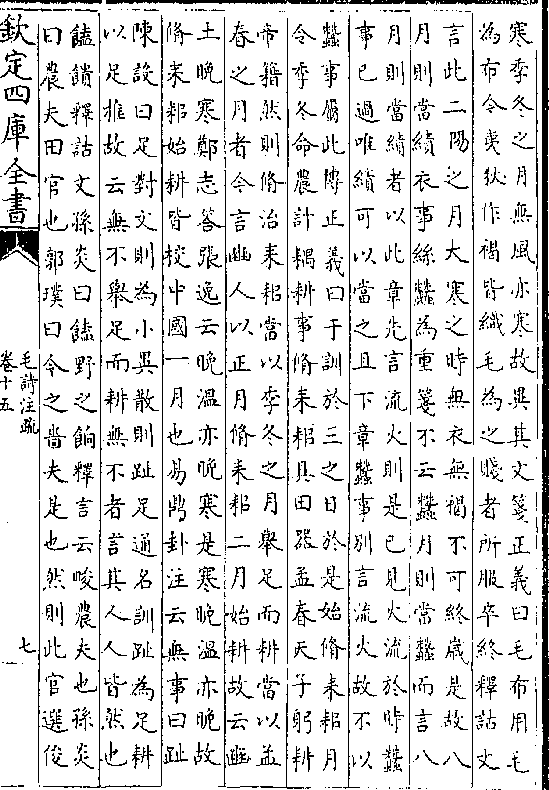 寒季冬之月無風亦寒故異其文箋正義曰毛布用毛
為布今夷狄作褐皆織毛為之賤者所服卒終釋詁文
言此二陽之月大寒之時無衣無褐不可終歲是故八
月則當績衣事絲蠶為重箋不云蠶月則當蠶而言八
月則當績者以此章先言流火則是已見火流於時蠶
事已過唯績可以當之且下章蠶事别言流火故不以
蠶事屬此傳正義曰于訓於三之日於是始脩耒耜月
令季冬命農計耦耕事脩耒耜具田器孟春天子躬耕
帝籍然則脩治耒耜當以季冬之月舉足而耕當以孟
春之月者今言豳人以正月脩耒耜二月始耕故云豳
土晚寒鄭志答張逸云晚溫亦晚寒是寒晚溫亦晚故
脩耒耜始耕皆校中國一月也易鼎卦注云無事曰趾
陳設曰足對文則為小異散則趾足通名訓趾為足耕
以足推故云無不舉足而耕無不者言其人人皆然也
饁饋釋詁文孫炎曰饁野之餉釋言云畯農夫也孫炎
曰農夫田官也郭璞曰今之嗇夫是也然則此官選俊
欽定四庫全書
毛詩注疏
卷十五
七